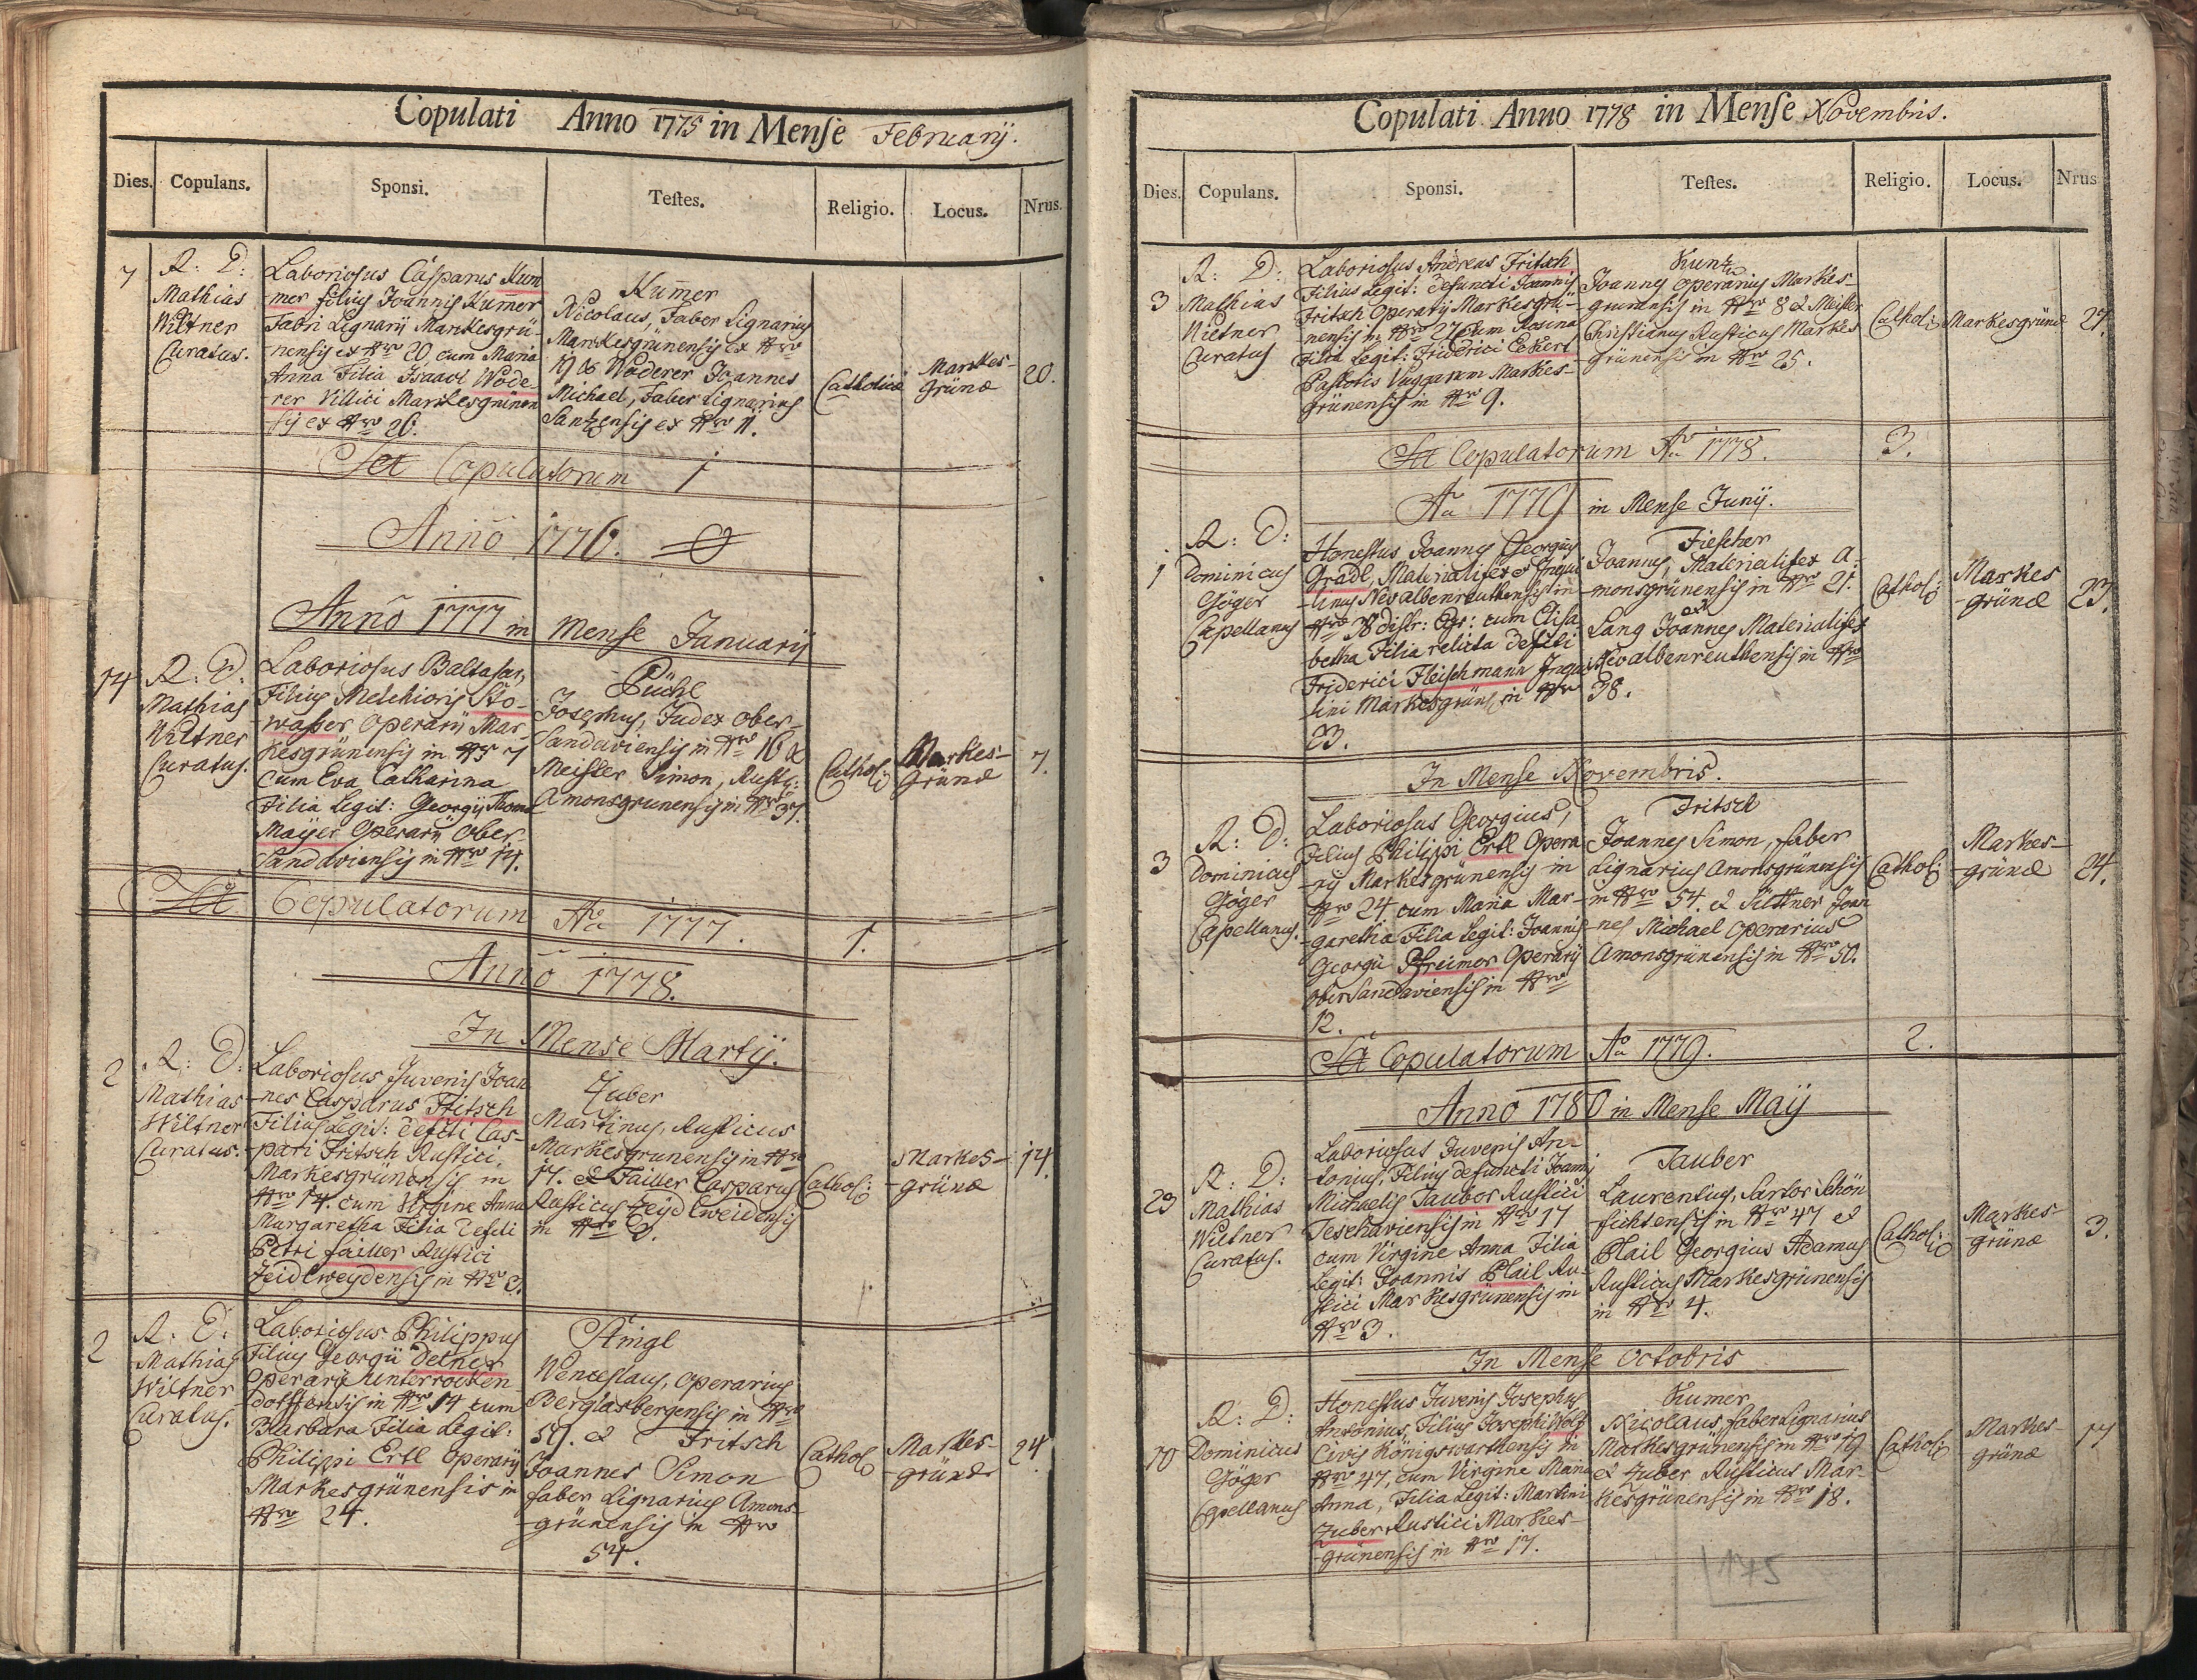 Copulati Anno 1775 in Mense Februarij.
Dies. Copulans. Sponsi. Testes. Religio. Locus. Nrus.
7
R: D:
Mathias
Wiltner
Curatus.
Laboriosus Casparus Kum
-mer filius Joannis Kummer
Fabri Lignarij Markesgrü-
-nensis ex Nro 20 cum Maria
Anna Filia Isaaci Wode-
-rer Villici Markesgrünen
sis ex Nro 26.
Kummer
Nicolaus, Faber Lignarius
Markesgrünensis ex Nro
19 & Woderer Joannes
Michael, Faber Lignarius
Santzensis ex Nro 11.
Catholicæ
Markes-
Grünæ
20.
Copulatorum 1
Anno 1776. 0
Anno 1777 in Mense Januarij
14
R: D:
Mathias
Wiltner
Curatus.
Laboriosus Baltasar,
Filius Melchioris Sto-
-wasser Operarij Mar-
kesgrünensis in Nro 7
cum Eva Catharina
Filia Legit: Georgij Thomæ
Mayer Operarij Ober-
Sandaviensis in Nro 14.
Püchl
Josephus, Judex Ober-
Sandaviensis in Nro 16 &
Meister Simon, Rustic:
Amonsgrunensis in Nro 37.
Cathol:
Markes-
Grünæ
7.
Copulatorum Ao 1777. 1.
Anno 1778.
In Mense Martij.
2
R: D:
Mathias
Wiltner
Curatus.
Laboriosus Juvenis Joan
-nes Casparus Fritsch
Filius Legit: defcti Cas-
-pari Fritsch Rustici
Markesgrünensis in
Nro 14. cum Virgine Anna
Margaretha Filia defcti
Petri Failler Rustici
Zeidlweydensis in Nro
Zuber
Martinus, Rusticus
Markesgrunensis in Nro
17. & Failler Casparus
Rusticus Zeydlweidensis
in Nro
Cathol:
Markes-
-grünæ
14.
2
R: D:
Mathias
Wiltner
Curatus.
Laboriosus Philippus
Filius Georgii Delner
Operarij Unterrocken
dorffensis in Nro 14 cum
Barbara Filia Legit:
Philippi Ertl Operarij
Markesgrünensis in
Nro 24.
Wenceslaus, Operarius
Berglasbergensis in Nro
59. & Fritsch
Joannes Simon
faber Lignarius Amons-
-grünensis in Nro
54.
Cathol
Markes-
-grünæ
24.
Copulati Anno 1778 in Mense Novembris.
Dies. Copulans. Sponsi. Testes. Religio. Locus. Nrus
3
R: D:
Mathias
Wiltner
Curatus
Laboriosus Andreas Fritsch
Filius Legit: defuncti Joannis
Fritsch Operarij Markesgrü-
nensis in Nro 27 cum Rosina
Filia Legit: Friderici Eckert
Pastoris Markes-
grünensis in Nro 9.
Kuntz
Joannes Operarius Markes-
grunensis in Nro 8 & Meister
Christianus Rusticus Markes
-grünensis in Nro 25.
Cathol:
Markesgrünæ
27.
Copulatorum Ao 1778. 3.
Ao 1779 in Mense Junij.
1
R: D:
Dominicus
Göger
Capellanus
Honestus Joannes Georgius
Gradl, Materialifex & Inqui
-linus Neoalbenreuthensis in
Nro 38 distr: Egr: cum Elisa
betha Filia relicta defcti
Friderici Fleischmann Inqui
lini Markesgrünæ in Nro
23.
Fischer
Joannes, Materialifex A-
monsgrünensis in Nro 21.
&
Lang Joannes Materialifex
Neoalbenreuthensis in Nro
38.
Cathol:
Markes
-grünæ
23.
In Mense Novembris.
3
R: D:
Dominicus
Göger
Capellanus.
Laboriosus Georgius,
Filius Philippi Ertl Opera
-rij Markesgrünensis in
Nro 24 cum Maria Mar-
-garetha Filia Legit: Joannis
Georgii Pfreimer Operarij
OberSandaviensis in Nro
12.
Fritsch
Joannes Simon, faber
Lignarius Amonsgrünensis
in Nro 54. & Joan
-nes Michael Operarius
Amonsgrünensis in Nro 50.
Cathol:
Markes-
-grünæ
24.
Copulatorum Ao 1779. 2.
Anno 1780 in Mense Maij
23
R: D:
Mathias
Wiltner
Curatus.
Laboriosus Juvenis An-
tonius, Filius defuncti Joannis
Michaelis Tauber Rustici
Teschaviensis in Nro 17
cum Virgine Anna Filia
Legit: Joannis Plail Ru-
stici Markesgrünensis in
Nro 3.
Tauber
Laurentius, Sartor Schön
fichtensis in Nro 47 &
Plail Georgius Adamus
Rusticus Markesgrünensis
in Nro 4.
Cathol:
Markes-
grünæ
3.
In Mense Octobris
10
R: D:
Dominicus
Göger
Capellanus
Honestus Juvenis Josephus
Antonius, Filius Josephi Wolf
Civis Königswarthensis in
Nro 47, cum Virgine Maria
Anna, Filia Legit: Martini
Zuber Rustici Markes-
-grünensis in Nro 17.
Kumer
Nicolaus faber Lignarius
Markesgrünensis in Nro 19
& Zuber Rusticus Mar-
kesgrünensis in Nro 18.
Cathol:
Markes-
grünæ
17
175